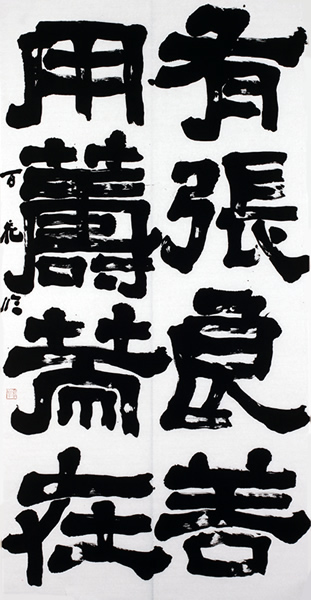 有張良善
用籌策在
百花臨